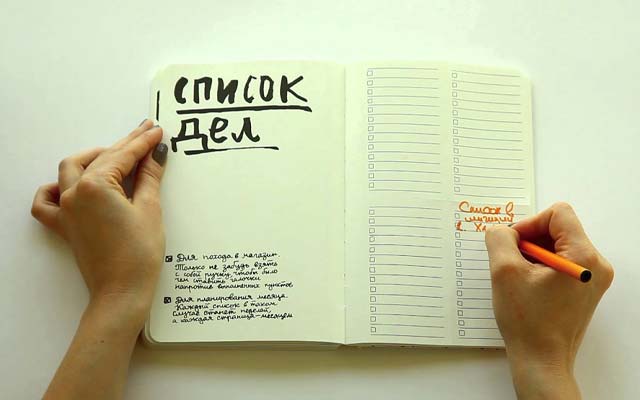 список
дел
Для похода в магазин.
Только не забудь взять
с собой ручку, чтоб было
чем ставить галочки
напротив выполненных пунктов
Для планирования месяца.
Каждый список в таком
случае станет неделей,
а каждая страница-месяцем
Список